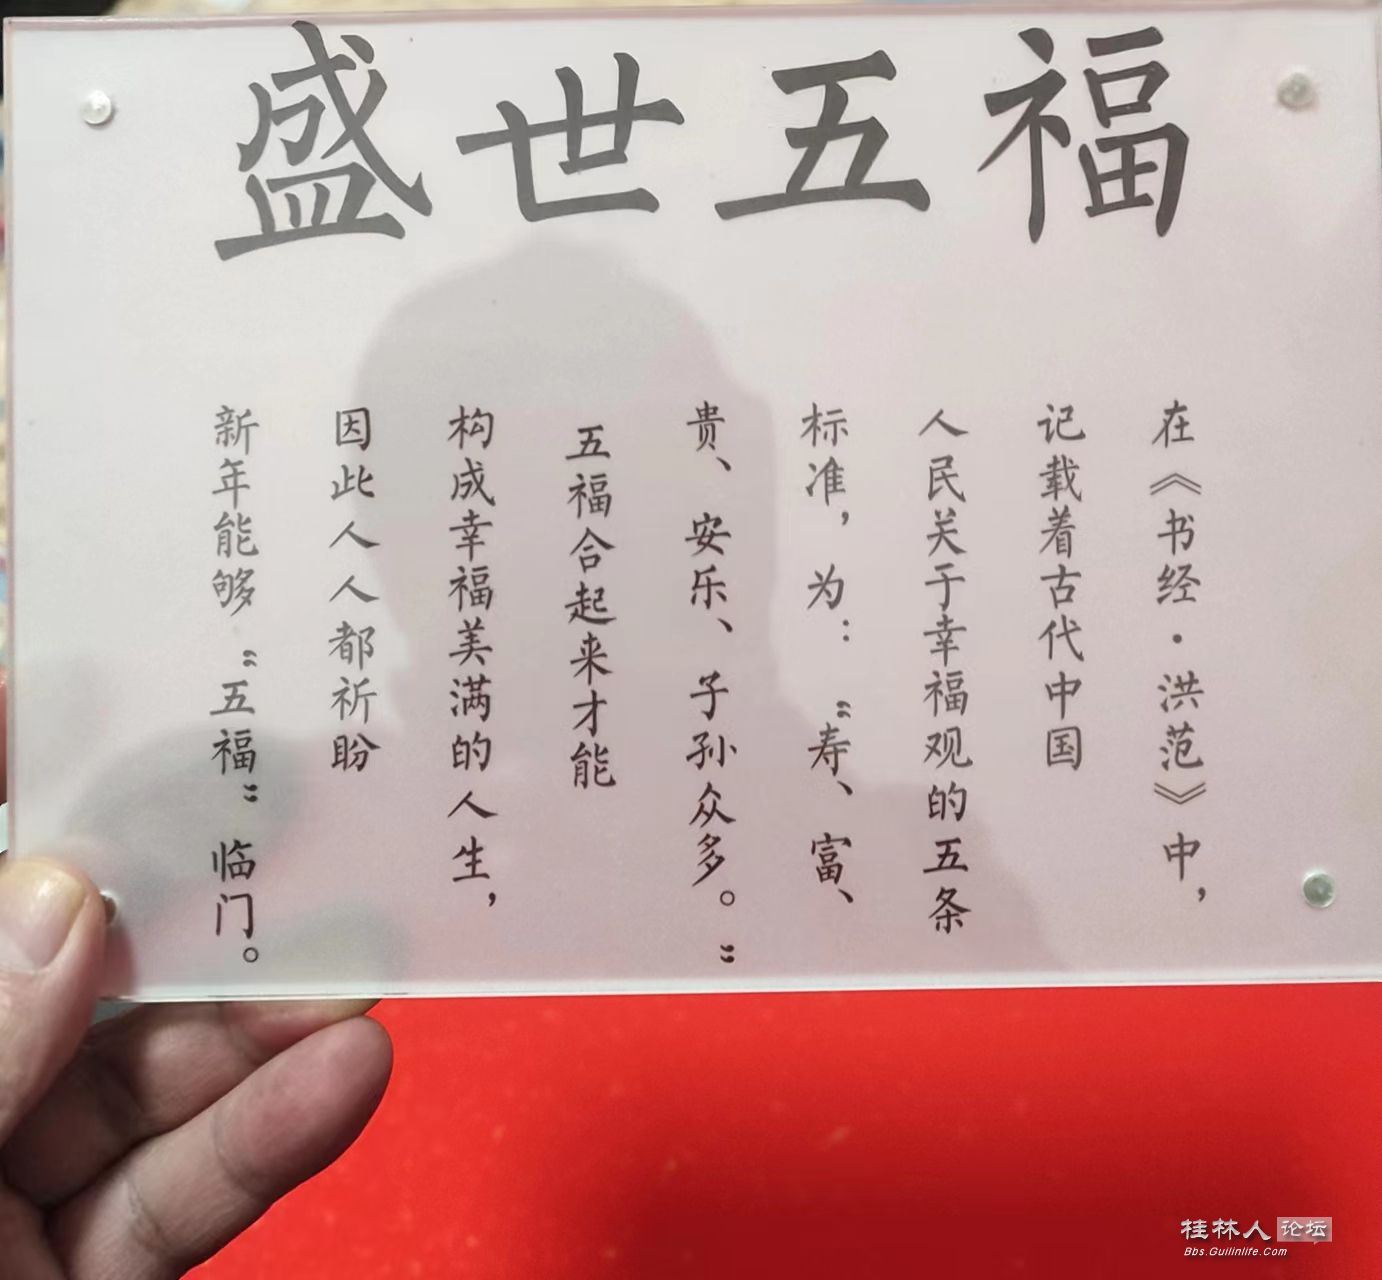 盛世五福
在《书经·洪范》中，
记载着古代中国
人民关于幸福观的五条
标准，为：“寿、富、
贵、安乐、子孙众多。”
五福合起来才能
构成幸福美满的人生，
因此人人都祈盼
新年能够“五福”临门。
桂林人论坛
Bbs.Guilinlife.Com